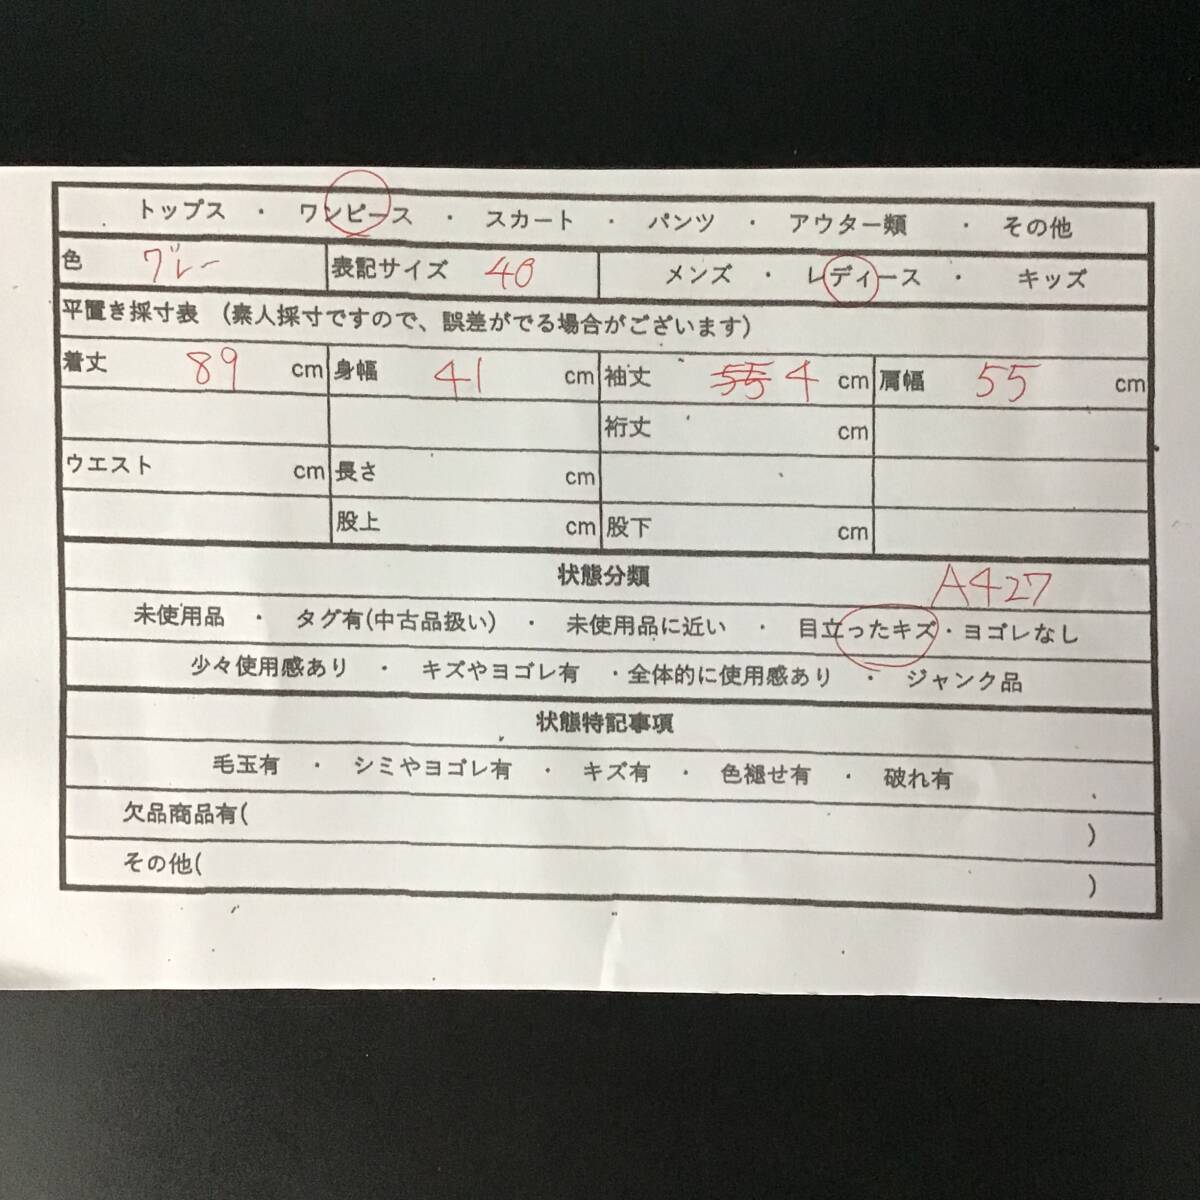 トップス ・ ワンピース ・ スカート ・ パンツ ・ アウター類 ・ その他
色 グレー 表記サイズ 40 メンズ ・ レディース ・ キッズ
平置き採寸表 (素人採寸ですので、誤差がでる場合がございます)
着丈 89 cm 身幅 41 cm 袖丈 55 4 cm 肩幅 55 cm
裄丈 cm
ウエスト cm 長さ cm
股上 cm 股下 cm
状態分類 A427
未使用品 ・ タグ有(中古品扱い) ・ 未使用品に近い ・ 目立ったキズ・ヨゴレなし
少々使用感あり ・ キズやヨゴレ有 ・全体的に使用感あり ・ ジャンク品
状態特記事項
毛玉有 ・ シミやヨゴレ有 ・ キズ有 ・ 色褪せ有 ・ 破れ有
欠品商品有( )
その他( )